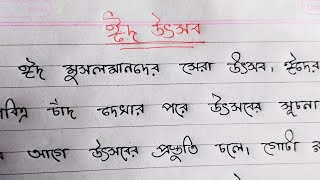 ঈদ উৎসব
ঈদ মুসলমানদের সেরা উৎসব। ঈদের
পবিত্র চাঁদ দেখার পরে উৎসবের সূচনা
আগে উৎসবের প্রস্তুতি চলে। গোটা